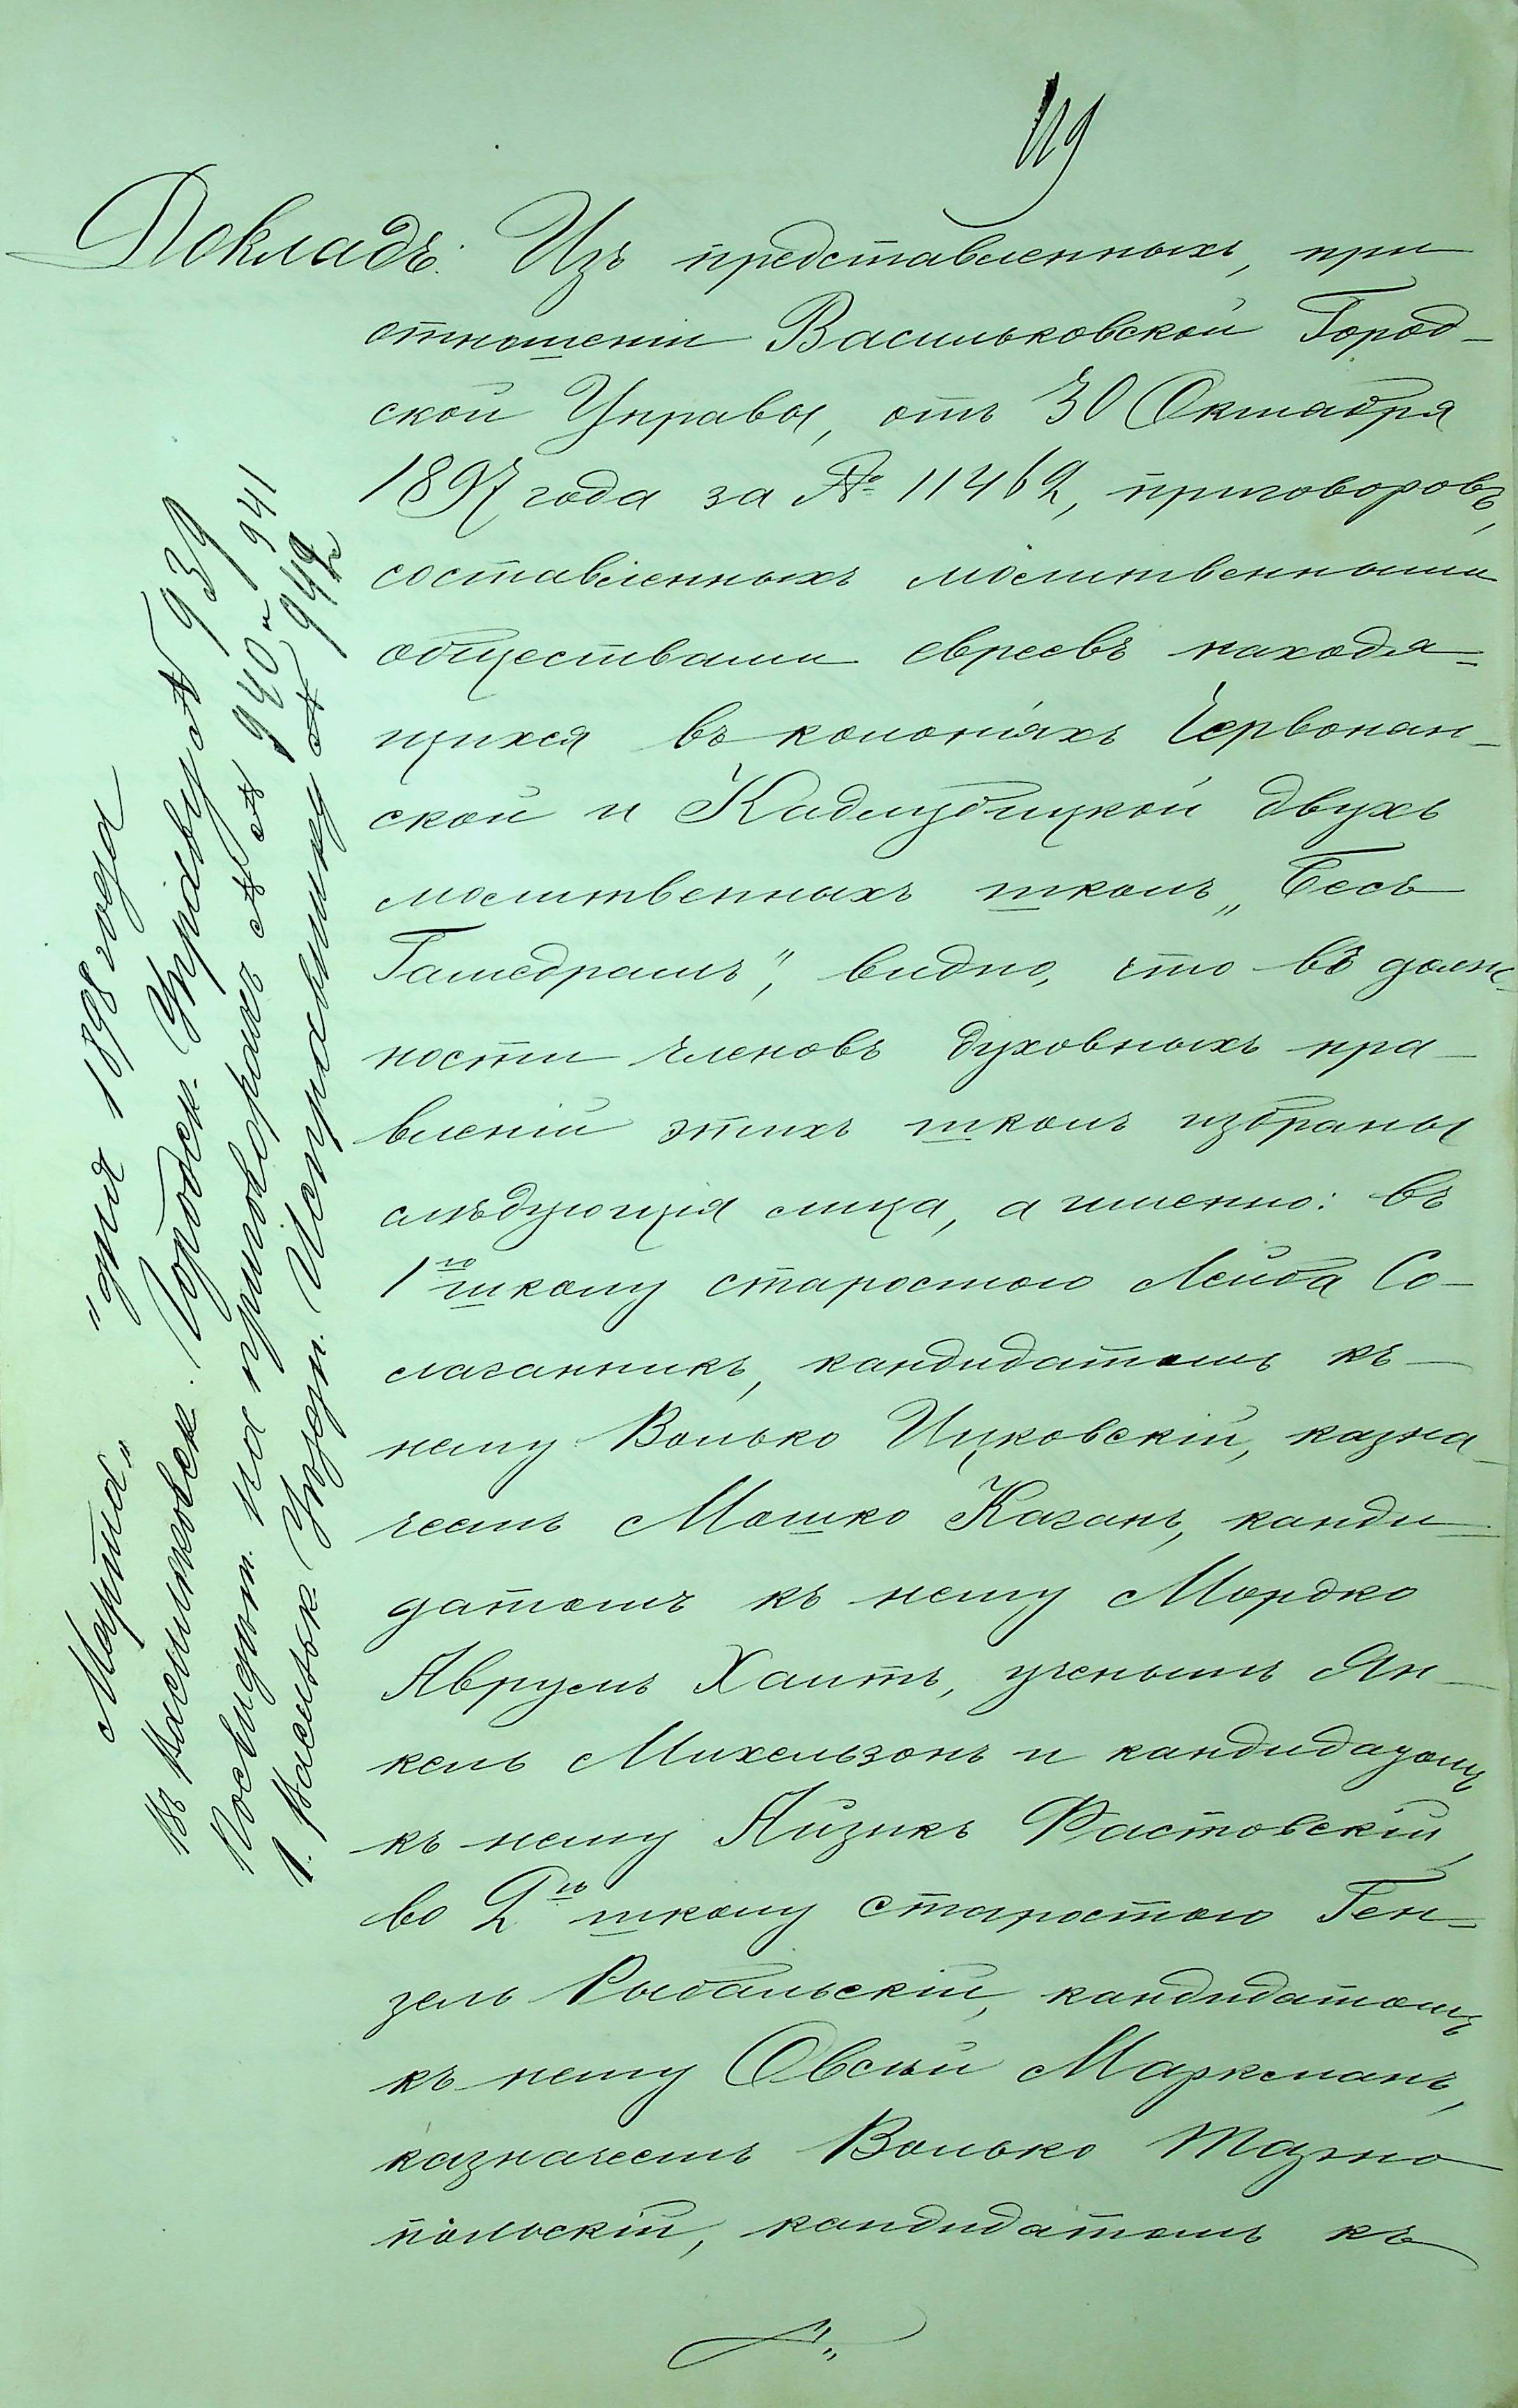 119
Докладъ. Изъ представленныхъ, при
отношеніи Васильковской Город-
ской Управы, отъ 30 Октября
1897 года за № 11462, приговоровъ,
составленныхъ молитвенными
обществами евреевъ находя-
щихся въ колоніяхъ Червонан-
ской и Кадлубицкой двухъ
молитвенныхъ школъ „Бесъ
Гамедрашъ", видно, что въ долж-
ности членовъ духовныхъ пра-
вленій этихъ школъ избраны
слѣдующія лица, а именно: въ
1ю школу старостою Лейба Со-
лаганникъ, кандидатомъ къ
нему Волько Ицковскій, казна-
чеемъ Мошко Каганъ, канди-
датомъ къ нему Мордко
Аврумъ Хаитъ, ученымъ Ян-
кель Михельзонъ и кандидатомъ
къ нему Айзикъ Фастовскій,
во 2ю школу старостою Ген-
зель Рыбальскій, кандидатомъ
къ нему Овсѣй Маркманъ,
казначеемъ Волько Тазно
польскій, кандидатомъ къ
Марта „ " дня 1898 года
Въ Васильковск. Городск. Управу № 939
на приговорахъ №№ 940 и 941
1. Васильк. Уѣздн. Исправнику № 942